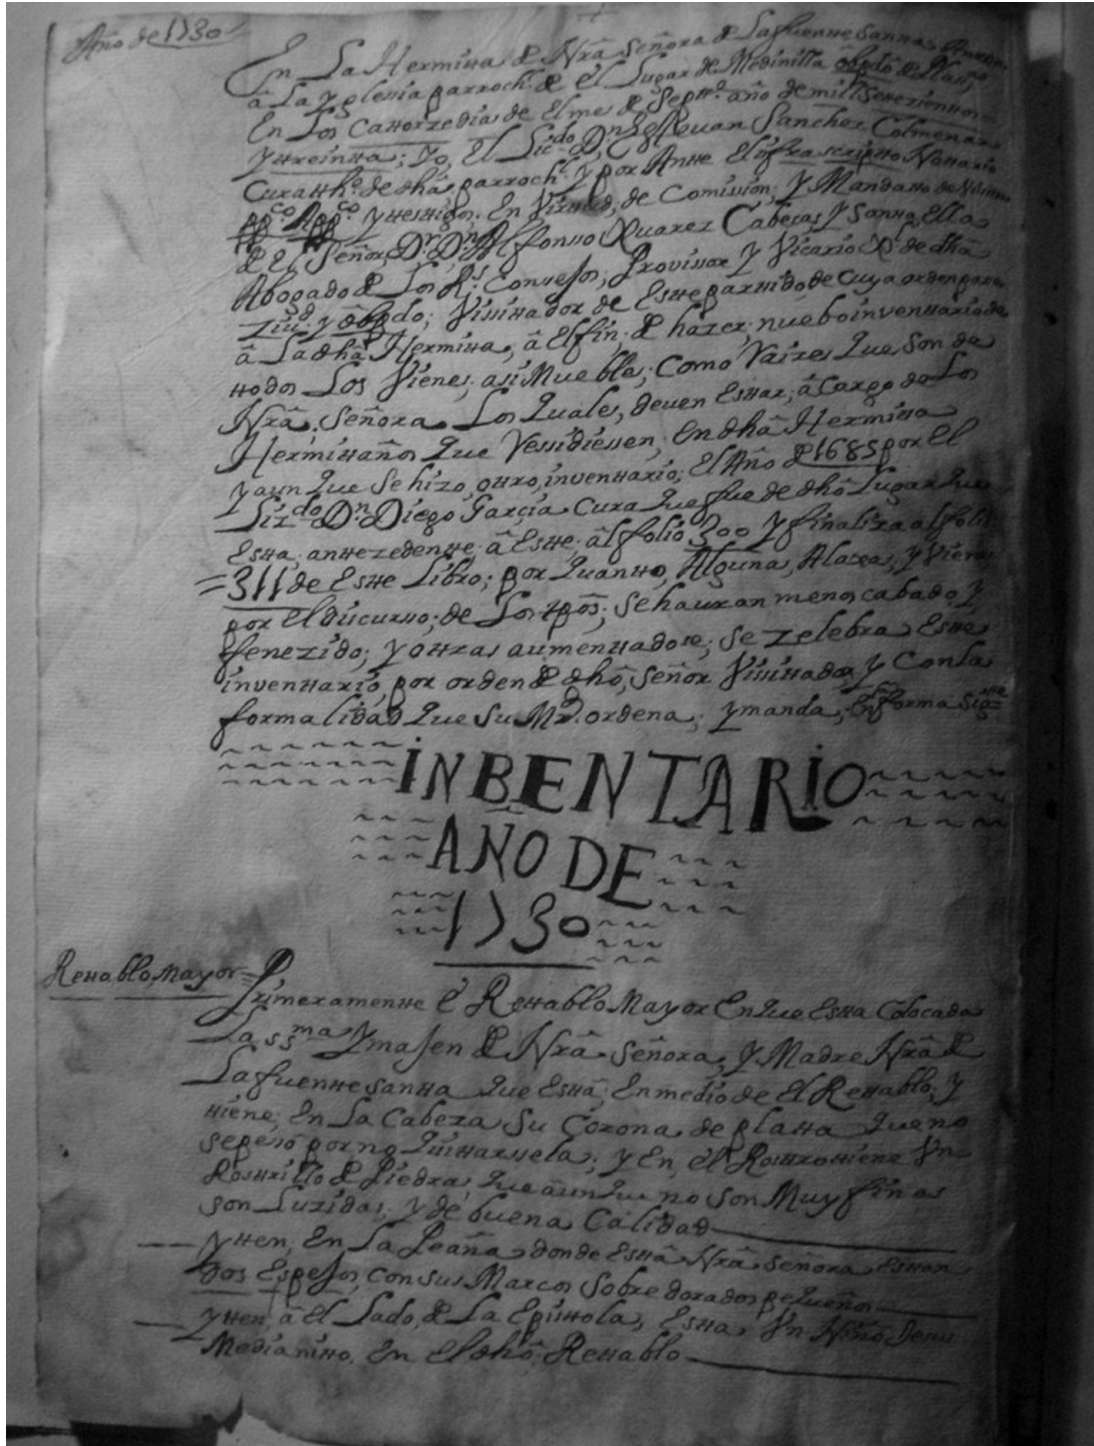 Año de 1730
En La Hermita de Nrâ Señora de Lafuente Santa,
â La Yglessia parroch.l de el Lugar de Medinilla ôbpdo de
En Los Catorze dias de el mes de Septt.e año de mill Setezientos
y treinta; Yo, El Liz.do D.n Estevan Sanchez Colmenar
Cura tht.e de dhâ parroch.l y por Ante El infrascripto Nottario
App.co y testigos. En Virtud, de Comision; y Mandato de
de el Señor D.r D.n Alfonsso Xuarez Cabecas, y Santa Ella
Abogado de Los R.s Consejos; Provissor y Vicario de dhâ
Ziu.d y ôbpdo; Visitador de Este partido de cuya orden
â La dhâ Hermita, â El fin, de hazer, nuebo inventario de
todos Los Vienes, asi Muebles, Como Raizes Que Son de
Nrâ. Señora. Los Quales, deven Estar, â Cargo de Los
Hermitaños Que Ressidiessen, En dhâ Hermita
Y aun Que Se hizo, otro, inventario; El Año de 1685 por El
Liz.do D.n Diego Garçia Cura Que fue de dhô Lugar Que
Esta, antezedente â Este âl folio 300 Y finaliza al folio
=311 de Este Libro; por Quanto, Algunas Alaxas, y Vienes
por El discurso; de Los tpôs; Se hauran menos cabado y
fenezido; y otras aumentadose; Se zelebra Este
inventario, por orden de dhô, Señor Visitador y Con la
formalidad Que Su Mrd. ordena; y manda, En forma sigte
INBENTARIO
AÑO DE
1730
Retablo Mayor=
Primeramente él Retablo Mayor En Que Esta Colocada
La ss.ma Ymajen de Nrâ Señora, y Madre Nrâ de
La fuente santa Que Està, En medio de el Retablo; y
tiene, En La Cabeza Su Corona de plata Que no
se pesò por no Quitarsela; y En, él Rostro tiene Vn
Rostrillo de Piedras Que aun Que no Son Muy finas
son Luzidas; y de buena Calidad
Yten, En La Peaña donde Està Nrâ señora Estan
dos Espejos, Con sus Marcos Sobre dorados pequeños
Yten, â el Lado, de La Epistola, Esta, Vn Niño Jesus
Medianito, En el dhô, Retablo